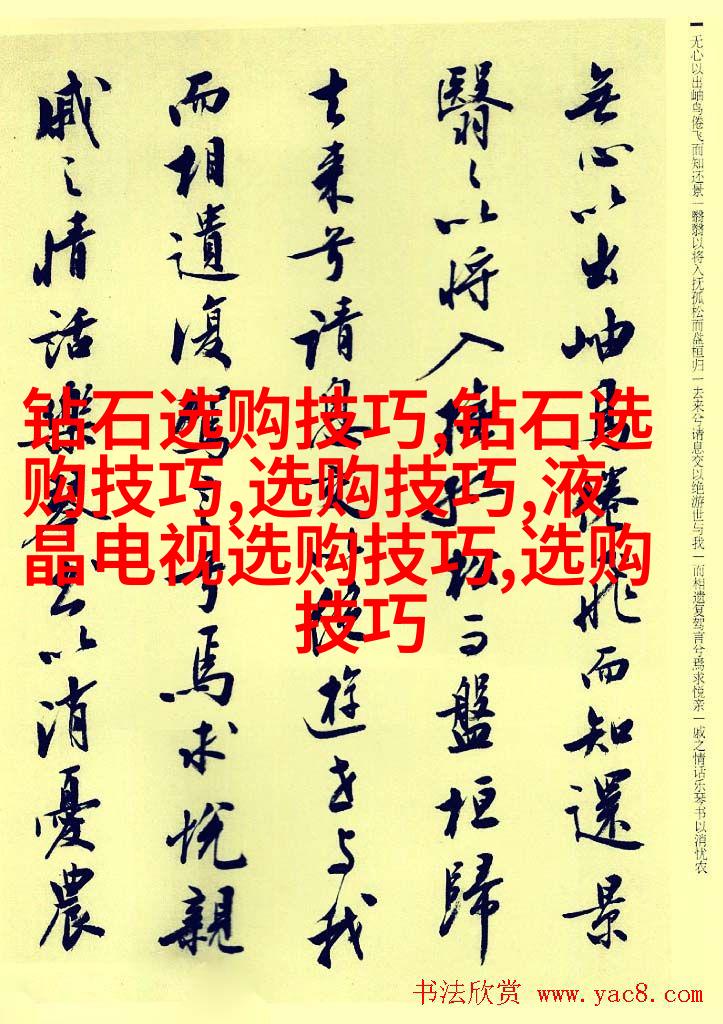 无心以出岫鸟倦飞而知还景一翳翳以将入抚孤松而盘桓归一去来兮请息交以绝游世与我一而相遗复驾言兮焉求悦亲一戚之情话乐琴书以消忧农
無心以出岫鳥倦飛而知還景
翳々以将入撫孤松而盤桓歸
去来兮请息交以絶遊世与我
而相遺復駕言兮焉求悦親
戚々情話樂琴書以消憂農
钻石选购技巧,钻石选
购技巧,选购技巧,液
晶电视选购技巧,选购
技巧
书法欣赏 www.yac8.com